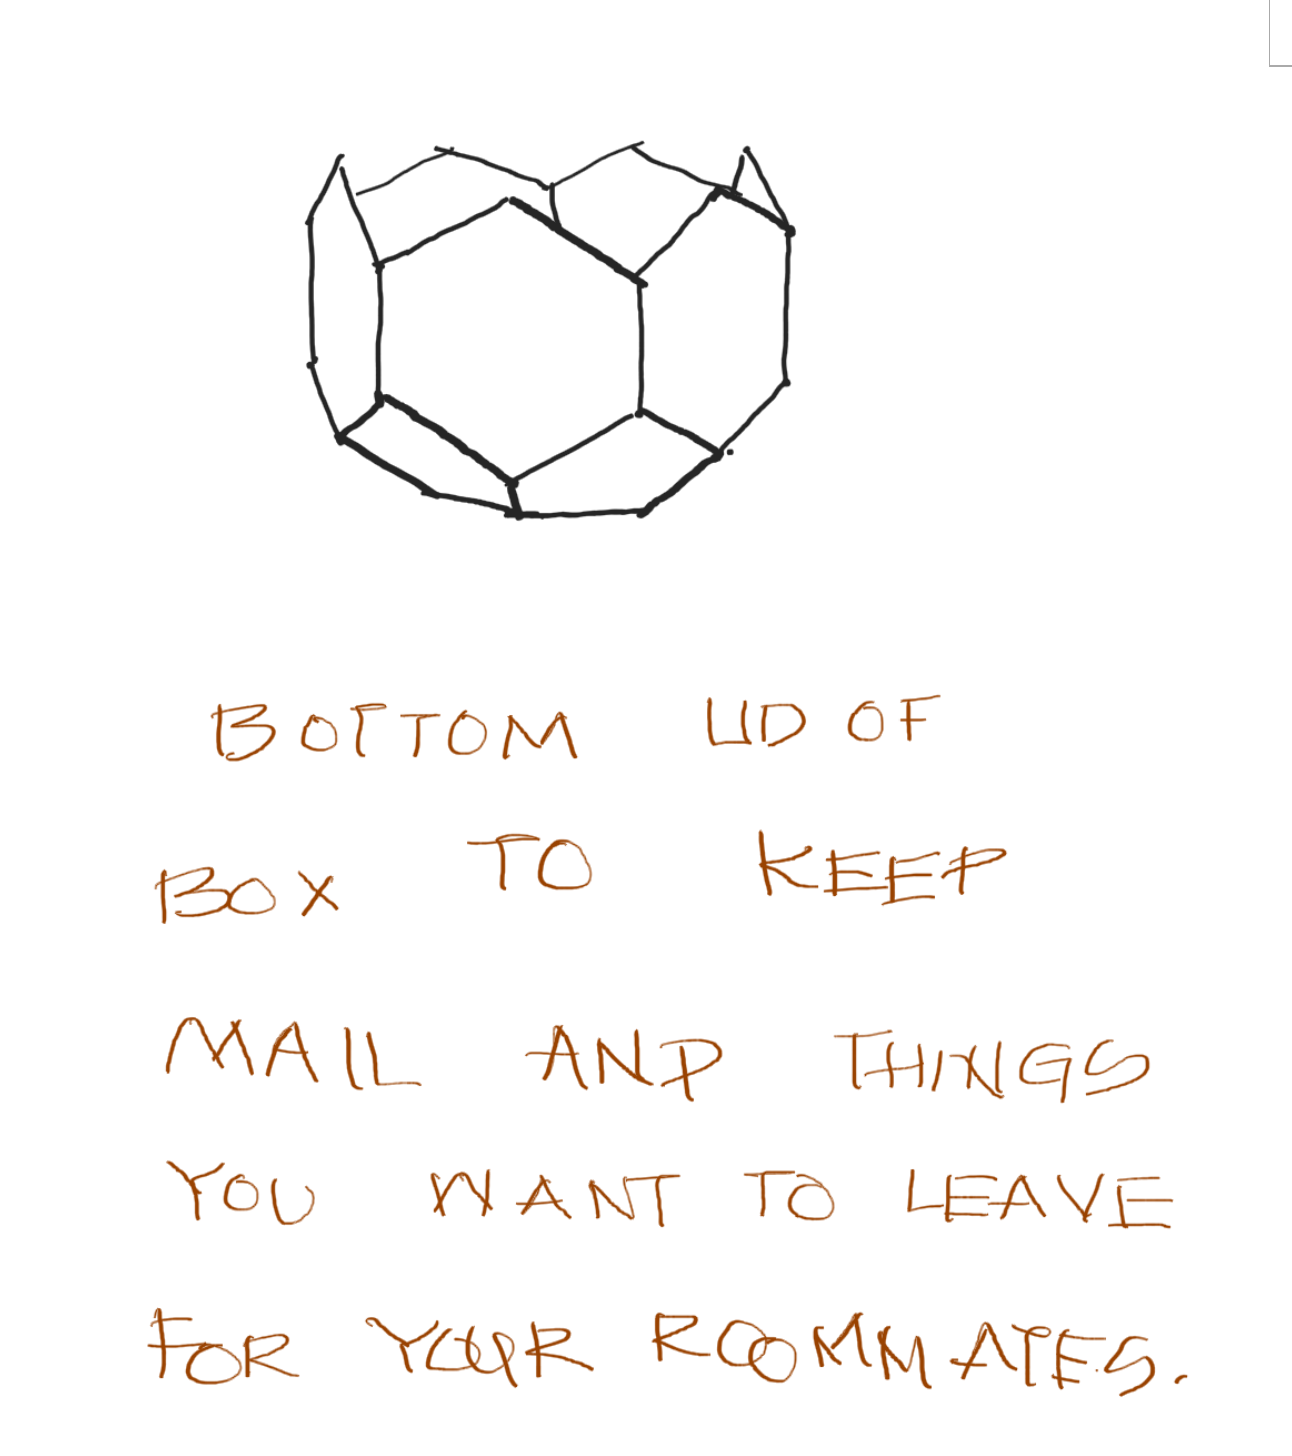 BOTTOM LID OF
BOX TO KEEP
MAIL AND THINGS
YOU WANT TO LEAVE
FOR YOUR ROOMMATES.